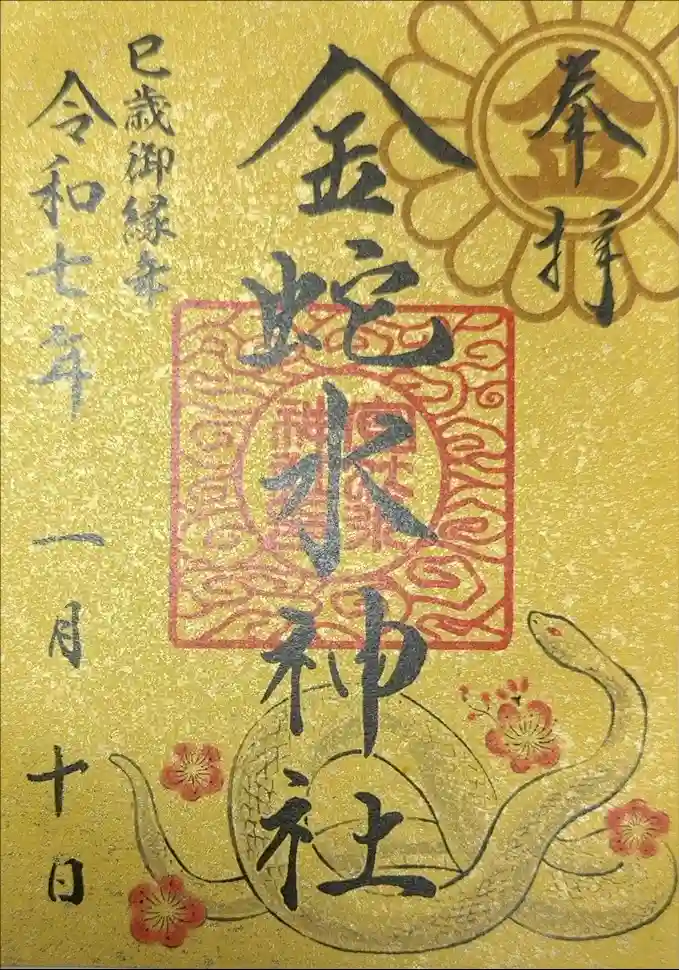 奉拝
金
金蛇水神社
巳歳御縁年
令和七年一月十日